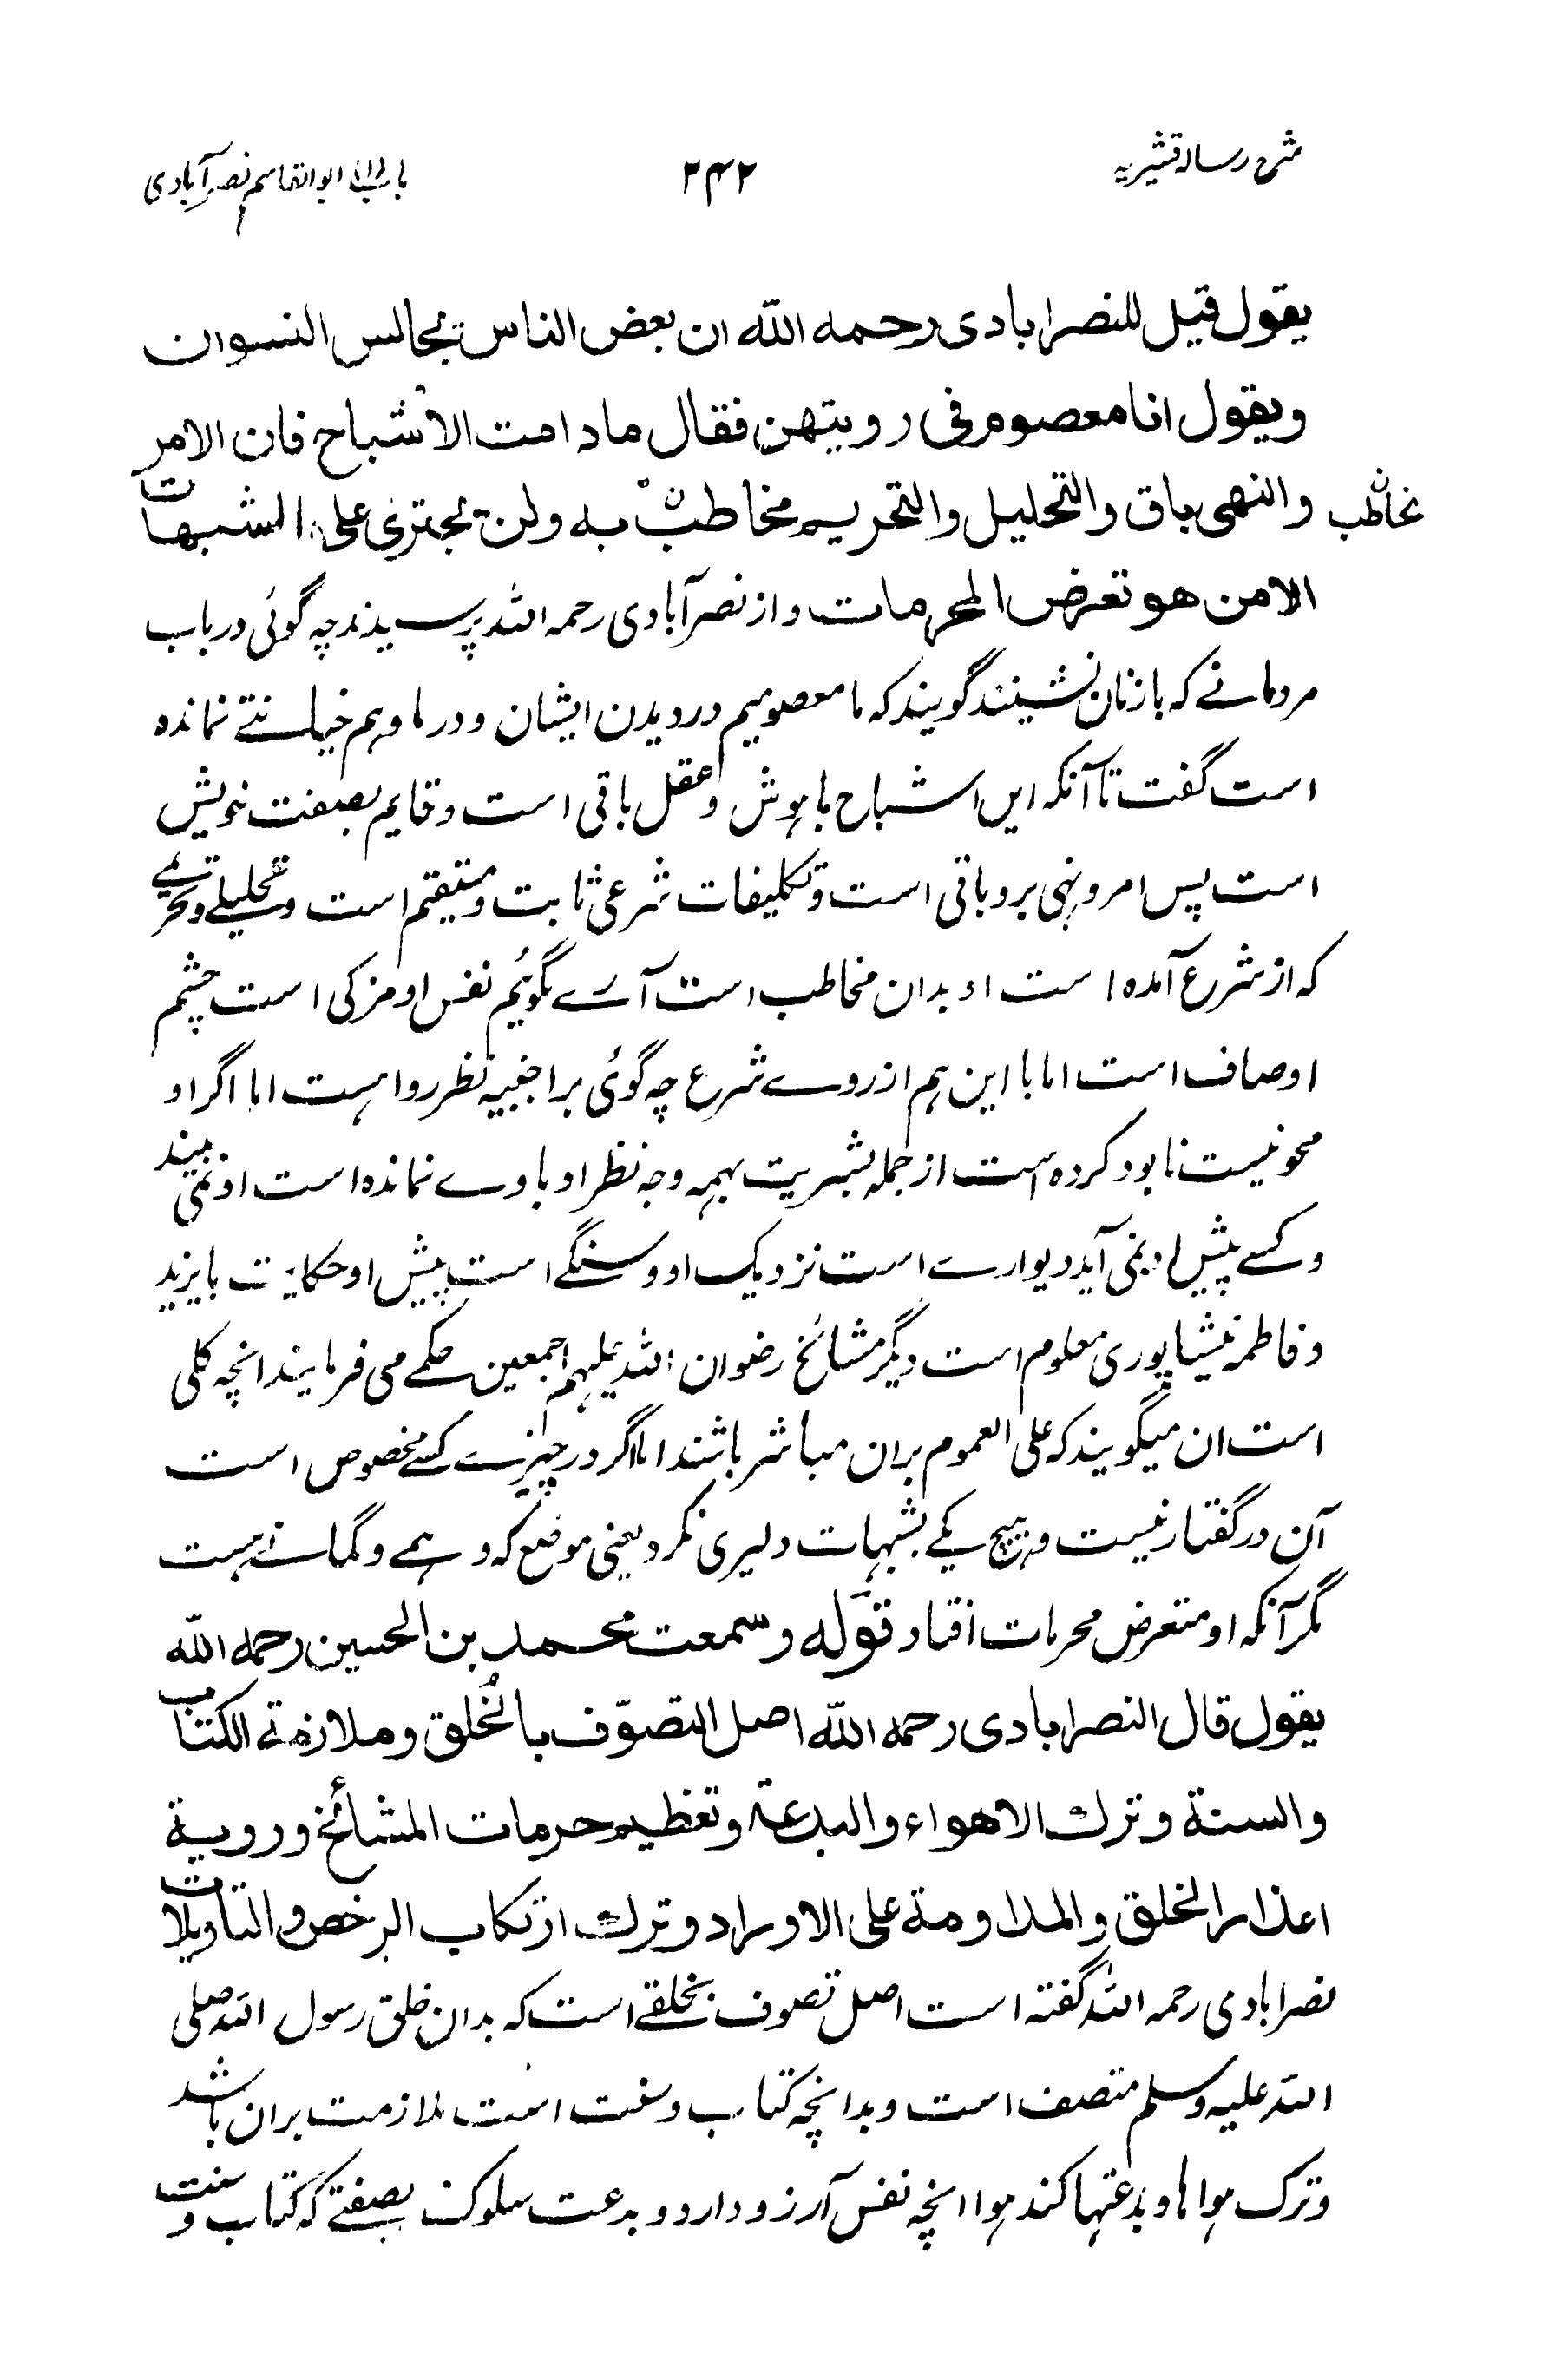 شرح رسالہ قشیریہ
۳۴۲
ابوالقاسم نصرآبادی
يقول قيل للنصرابادی رحمه الله ان بعض الناس يجالس النسوان
ويقول انا معصوم فی رويتهن فقال ما دامت الاشباح فان الامر
والنهی باق والتحليل والتحريم مخاطب به ولن يجتری علی الشبهات
الا من هو تعرض المحرمات واز نصرآبادی رحمه الله پرسیدند چه گوئی در باب
مردمانے که بازنان نشینند گویند که ما معصومیم در دیدن ایشان و در ما وہم خیانتے نمانده
است گفت تا آنکه ایں اشباح با ہوش و عقل باقی است و قایم بصفت خویش
است پس امر و نہی برو باقی است و تکلیفات شرعی ثابت و مستقیم است و تحلیلے و تحریمے
که از شرع آمده است او بدان مخاطب است آرے بگوئیم نفس او مزکی است چشم
اوصاف است اما با این ہم از روے شرع چه گوئی بر اجنبیه نظر روا ہست اما اگر او
محو نیست نابود کرده است از جمله بشریت بہمه وجه نظر او با وے نمانده است او نمی بیند
و کسے پیش او نمی آید دیوارے است نزدیک او و سنگے است پیش او حکایت بایزید
و فاطمه نیشاپوری معلوم است دیگر مشائخ رضوان الله علیہم اجمعین حکمے می فرمایند انچه کلی
است ان میگویند که علی العموم بران مباشر باشند اما اگر در چیزے کسے مخصوص است
آن در گفتار نیست و ہیچ یکے بشبہات دلیری نکرد یعنی موضع که وہمے و گمانے ہست
مگر آنکه او متعرض محرمات افتاد قوله وسمعت محمد بن الحسين رحمه الله
يقول قال النصرابادی رحمه الله اصل التصوّف بالخلق وملازمة الکتاب
والسنة وترك الاهواء والبدعة وتعظيم حرمات المشائخ وروية
اعذار الخلق والمداومة علی الاوراد وترك ارتکاب الرخص والتاويلات
نصرابادی رحمه الله گفته است اصل تصوف بخلقے است که بدان خلق رسول الله صلی
الله علیه وسلم متصف است و بدانچه کتاب و سنت است ملازمت بران باشد
و ترک ہوا ہا و بدعتہا کند ہوا انچه نفس آرزو دارد و بدعت سلوک بصفتے که کتاب و سنت